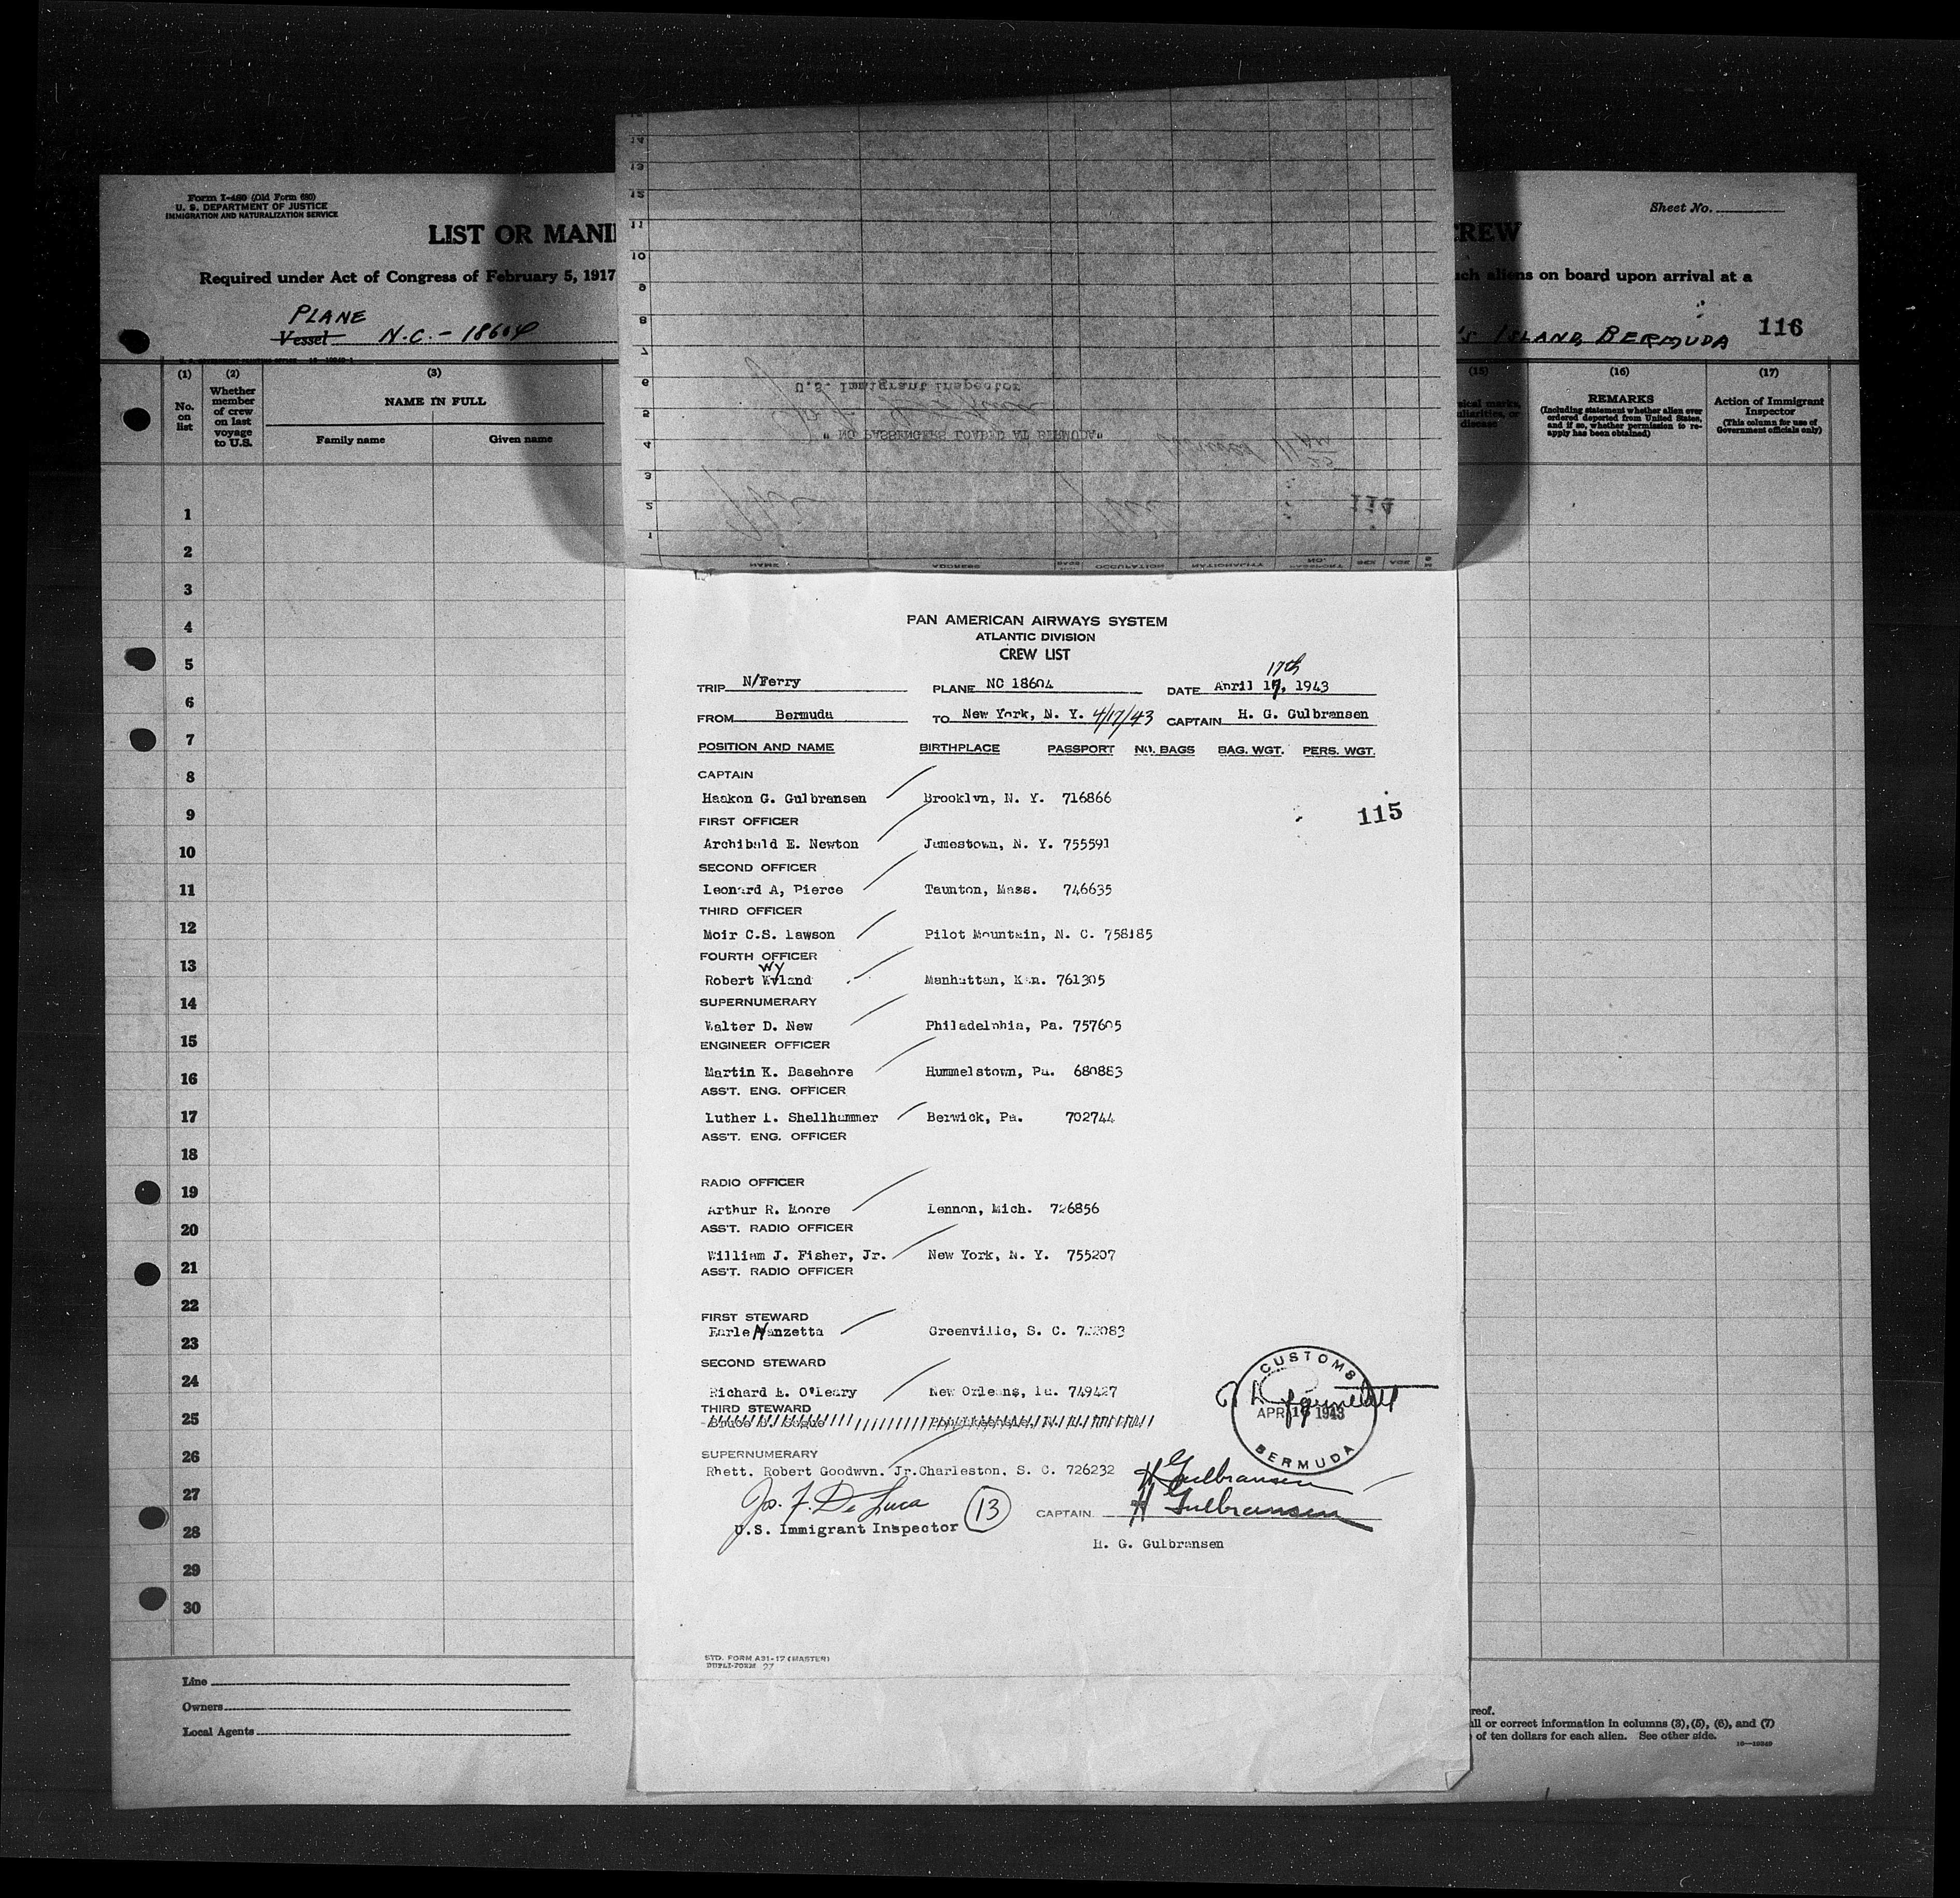 Form I-480 (Old Form 680)
U. S. DEPARTMENT OF JUSTICE
IMMIGRATION AND NATURALIZATION SERVICE
Sheet No.
LIST OR MANI
CREW
Required under Act of Congress of February 5, 1917
ch aliens on board upon arrival at a
PLANE
Vessel N.C.- 18604
'S ISLAND BERMUDA 116
(1) (2) (3) (15) (16) (17)
No. on list
Whether member of crew on last voyage to U.S.
NAME IN FULL
Family name Given name
disease
REMARKS
(Including statement whether alien ever ordered deported from United States, and if so, whether permission to re-apply has been obtained)
Action of Immigrant Inspector
(This column for use of Government officials only)
1
2
3
4
5
6
7
8
9
10
11
12
13
14
15
16
17
18
19
20
21
22
23
24
25
26
27
28
29
30
Line
Owners
Local Agents
reof.
all or correct information in columns (3), (5), (6), and (7)
of ten dollars for each alien. See other side.
14
13
12
11
10
9
8
7
6
5
4
3
2
1
U.S. Immigrant Inspector
"NO PASSENGERS LOADED AT BERMUDA"
114
NAME ADDRESS OCCUPATION NATIONALITY PASSPORT NO. SEX AGE
PAN AMERICAN AIRWAYS SYSTEM
ATLANTIC DIVISION
CREW LIST
17th
TRIP N/Ferry PLANE NC 18604 DATE April 17, 1943
FROM Bermuda TO New York, N. Y. 4/17/43 CAPTAIN H. G. Gulbransen
POSITION AND NAME BIRTHPLACE PASSPORT NO. BAGS BAG. WGT. PERS. WGT.
CAPTAIN
Haakon G. Gulbransen Brooklyn, N. Y. 716866
115
FIRST OFFICER
Archibald E. Newton Jamestown, N. Y. 755591
SECOND OFFICER
Leonard A, Pierce Taunton, Mass. 746635
THIRD OFFICER
Moir C.S. Lawson Pilot Mountain, N. C. 758185
FOURTH OFFICER
Wy
Robert Wyland Manhattan, Kan. 761305
SUPERNUMERARY
Walter D. New Philadelphia, Pa. 757605
ENGINEER OFFICER
Martin K. Basehore Hummelstown, Pa. 680883
ASS'T. ENG. OFFICER
Luther L. Shellhammer Berwick, Pa. 702744
ASS'T. ENG. OFFICER
RADIO OFFICER
Arthur R. Moore Lennon, Mich. 726856
ASS'T. RADIO OFFICER
William J. Fisher, Jr. New York, N. Y. 755207
ASS'T. RADIO OFFICER
FIRST STEWARD
Earle Nanzetta Greenville, S. C.
SECOND STEWARD
Richard E. O'Leary New Orleans, La. 749427
THIRD STEWARD
SUPERNUMERARY
Rhett. Robert Goodwyn. Jr. Charleston, S. C. 726232
CUSTOMS
APR 16 1943
BERMUDA
H Gulbransen
Jos. F. De Luca
U.S. Immigrant Inspector
13
CAPTAIN H Gulbransen
H. G. Gulbransen
STD. FORM A31-17 (MASTER)
DUPLI-FORM 27